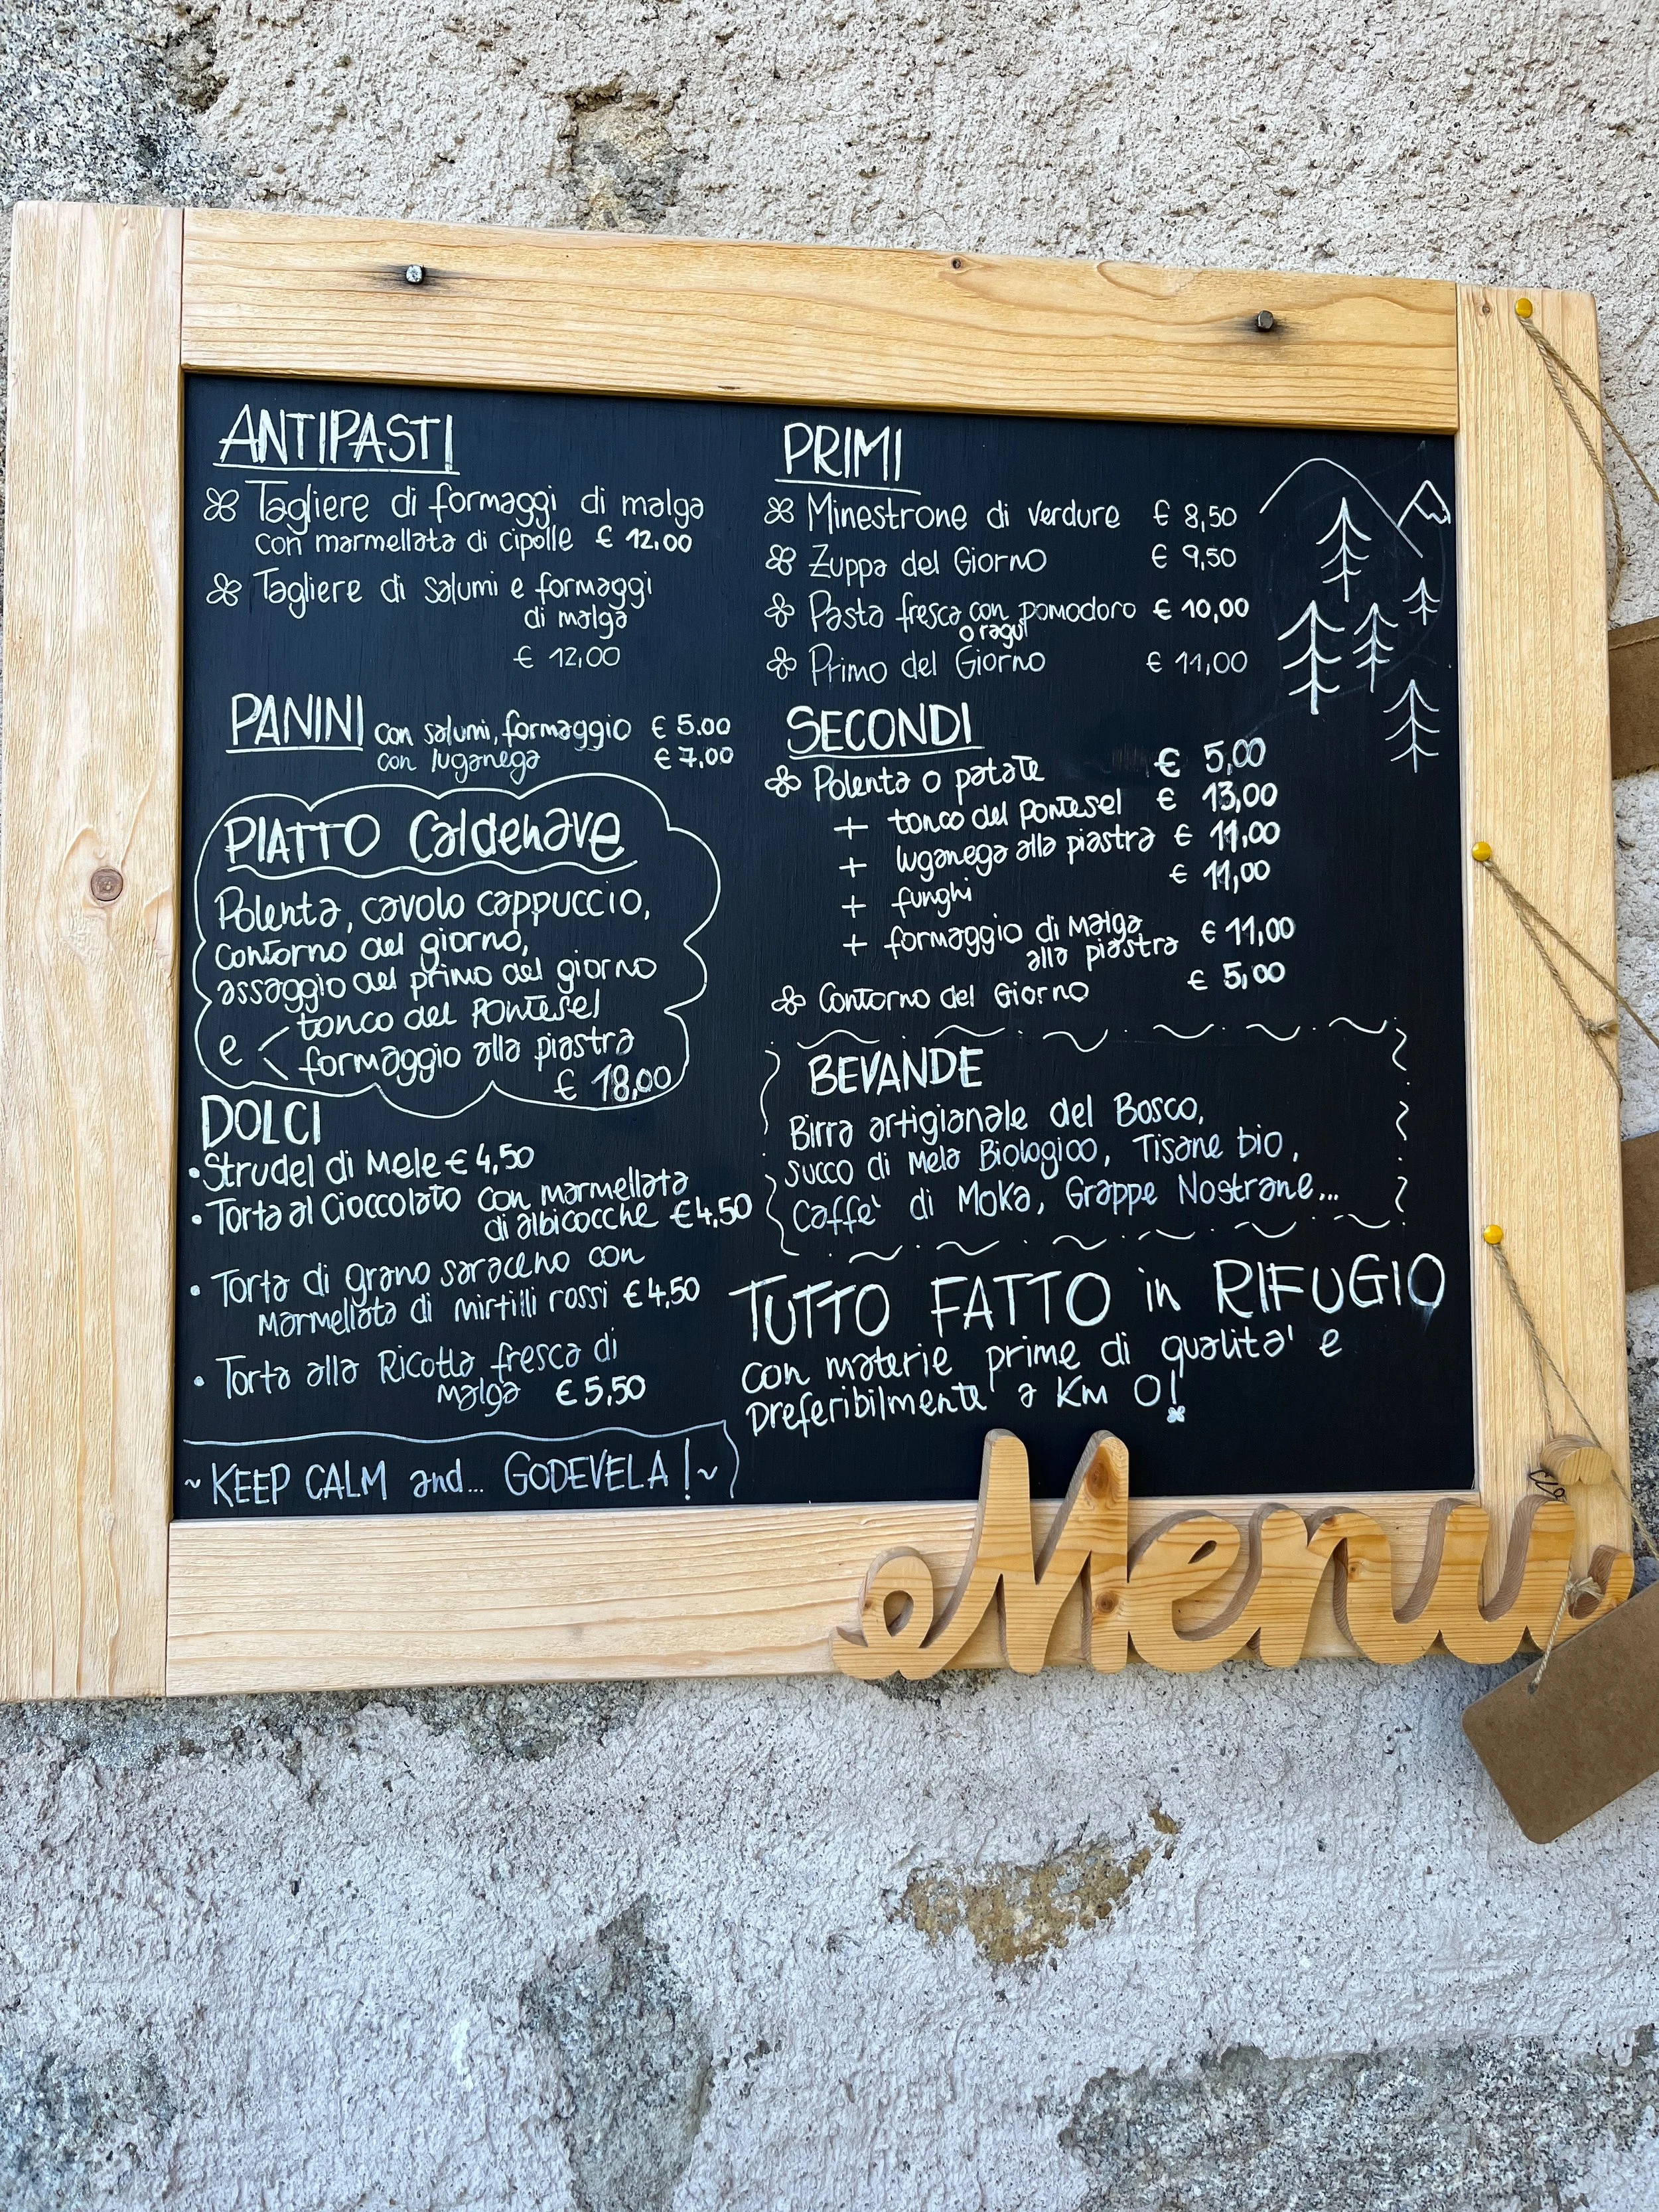 ANTIPASTI
Tagliere di formaggi di malga
con marmellata di cipolle € 12,00
Tagliere di salumi e formaggi
di malga
€ 12,00
PANINI con salumi, formaggio € 5.00
con luganega € 7,00
PIATTO Caldenave
Polenta, cavolo cappuccio,
contorno del giorno,
assaggio del primo del giorno
e < tonco del PONTESEL
formaggio alla piastra
€ 18,00
DOLCI
• Strudel di Mele € 4,50
• Torta al Cioccolato con marmellata
di albicocche € 4,50
• Torta di grano saraceno con
marmellata di mirtilli rossi € 4,50
• Torta alla Ricotta fresca di
malga € 5,50
~ KEEP CALM and... GODEVELA! ~
PRIMI
Minestrone di verdure € 8,50
Zuppa del Giorno € 9,50
Pasta fresca con pomodoro € 10,00
o ragu'
Primo del Giorno € 11,00
SECONDI
Polenta o patate € 5,00
+ tonco del PONTESEL € 13,00
+ luganega alla piastra € 11,00
+ funghi € 11,00
+ formaggio di malga
alla piastra € 11,00
Contorno del Giorno € 5,00
BEVANDE
Birra artigianale del Bosco,
succo di Mela Biologico, Tisane bio,
Caffe' di Moka, Grappe Nostrane...
TUTTO FATTO in RIFUGIO
con materie prime di qualita' e
preferibilmente a Km 0!
Menu